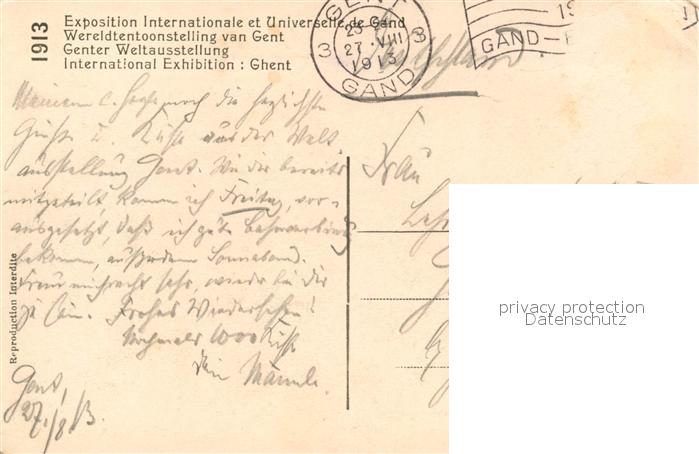 1913
Exposition Internationale et Universelle de Gand
Wereldtentoonstelling van Gent
Genter Weltausstellung
International Exhibition : Ghent
GENT
3 27 · VIII 3
1913
GAND
19
GAND —
Deutschland
noch die herzlichsten
Grüße u. Küsse aus der Welt
ausstellung Gent. Wie dir bereits
mitgeteilt, komme ich Freitag, vor-
ausgesetzt, daß ich gute
bekomme, Sonnabend.
Freue mich sehr, wieder bei dir
zu sein. Frohes Wiedersehen!
Nochmals 1000 Küsse
Dein Männle.
Gent,
27./8.13.
Frau
Reproduction Interdite
privacy protection
Datenschutz